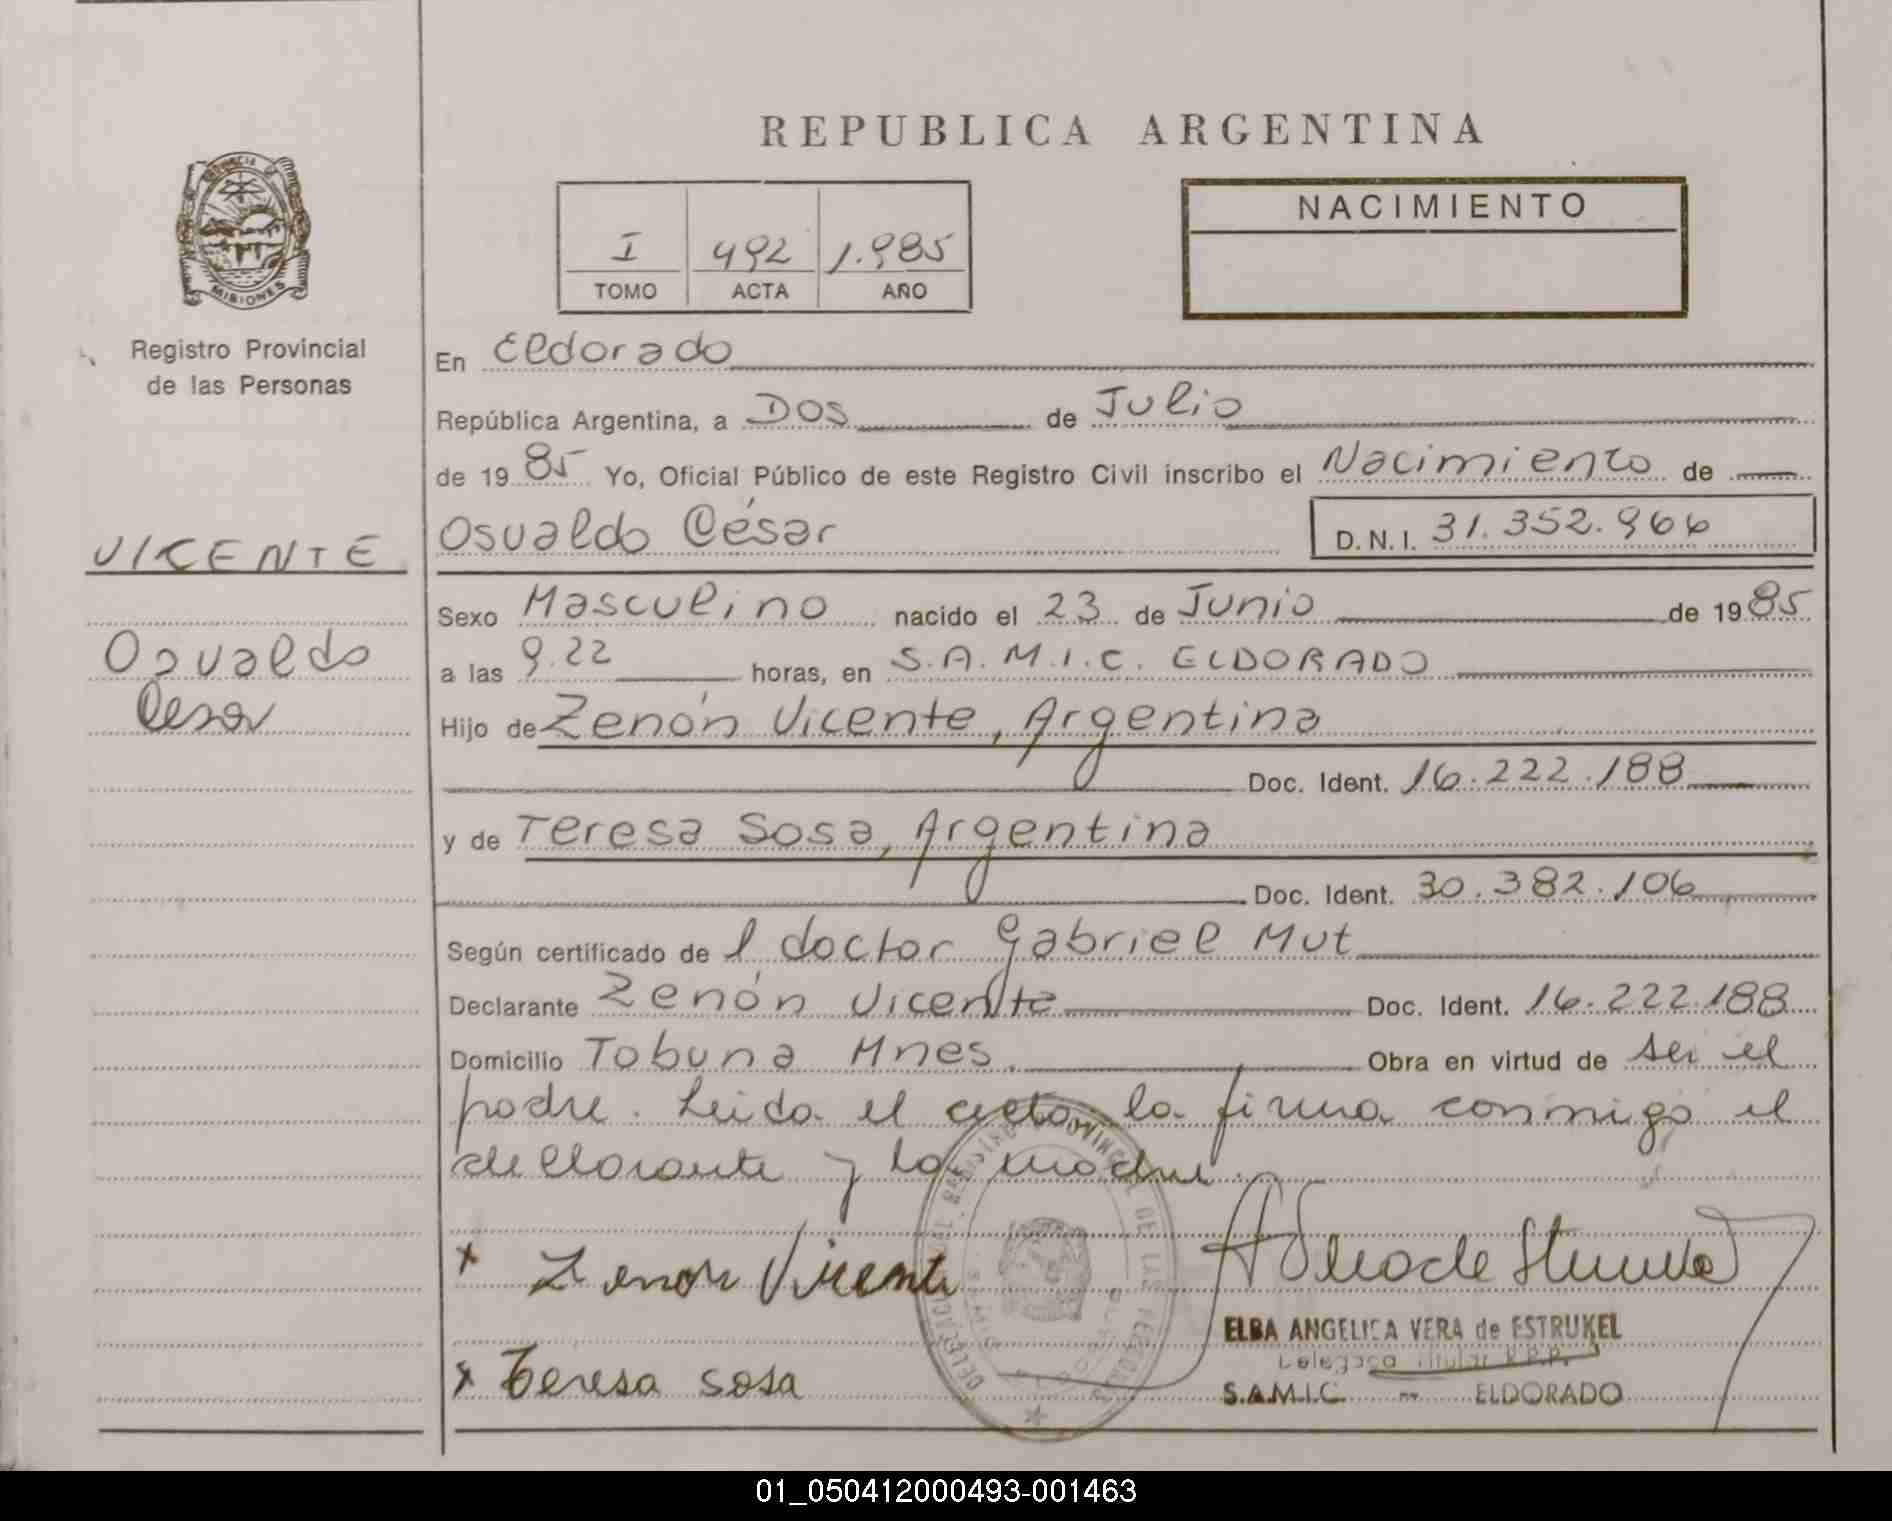 REPUBLICA ARGENTINA
PROVINCIA DE
MISIONES
Registro Provincial
de las Personas
I 492 1.985
TOMO ACTA AÑO
NACIMIENTO
En Eldorado
República Argentina, a DOS de Julio
de 1985 Yo, Oficial Público de este Registro Civil inscribo el Nacimiento de
Osvaldo César D.N.I. 31.352.966
VICENTE
Osvaldo
Cesar
Sexo Masculino nacido el 23 de Junio de 1985
a las 9.22 horas, en S.A.M.I.C. ELDORADO
Hijo de Zenón Vicente, Argentina
Doc. Ident. 16.222.188
y de Teresa Sosa, Argentina
Doc. Ident. 30.382.106
Según certificado de l doctor Gabriel Mut
Declarante Zenón Vicente Doc. Ident. 16.222.188
Domicilio Tobuna Mnes. Obra en virtud de ser el
padre. Leida el acta la firma conmigo el
declarante y la madre.
x Zenon Vicente
x Teresa Sosa
REGISTRO PROVINCIAL DE LAS PERSONAS
ELBA ANGELICA VERA de ESTRUKEL
Delegada Titular R.P.P.
S.A.M.I.C. - ELDORADO
01_050412000493-001463